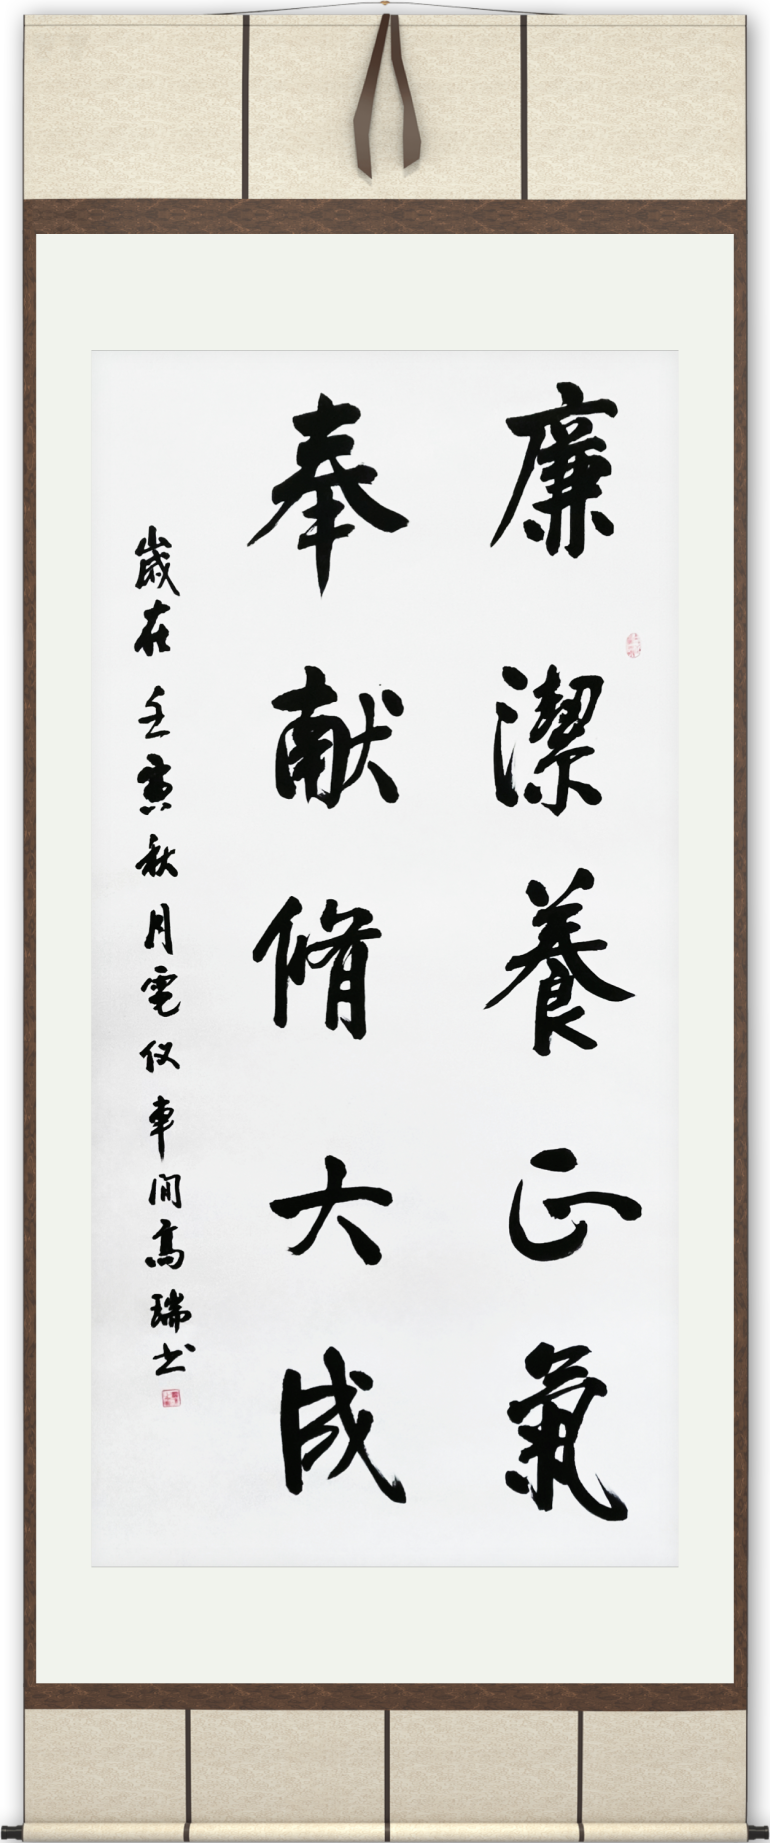 廉潔養正氣
奉献脩大成
歲在壬寅秋月電仪車間高瑞书